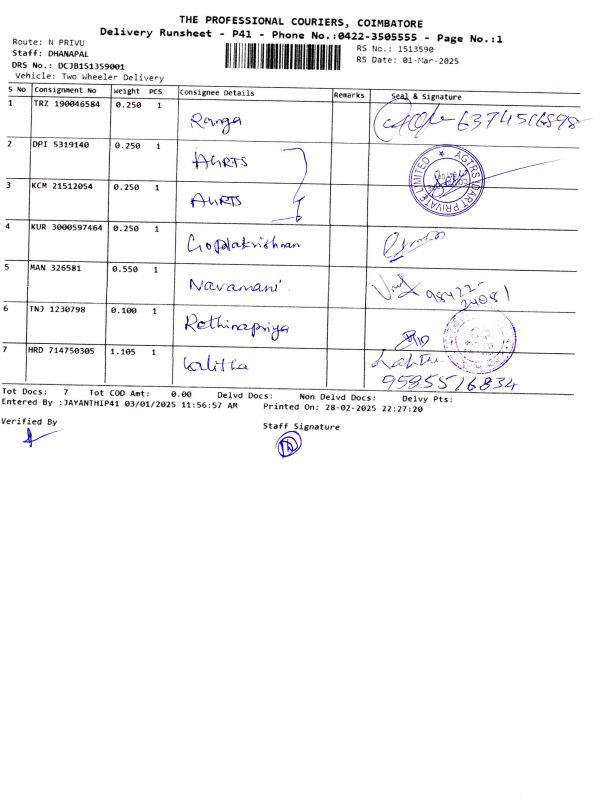 THE PROFESSIONAL COURIERS, COIMBATORE
Delivery Runsheet - P41 - Phone No.:0422-3505555 - Page No.:1
Route: N PRIVU
RS No.: 1513590
Staff: DHANAPAL
RS Date: 01-Mar-2025
DRS No.: DCJB151359001
Vehicle: Two Wheeler Delivery
S No Consignment No Weight PCS Consignee Details Remarks Seal & Signature
1 TRZ 190046584 0.250 1 Ranga 6374516898
2 DPI 5319140 0.250 1 AGRTS
3 KCM 21512054 0.250 1 AGRTS
4 KUR 3000597464 0.250 1 Gopalakrishnan
5 MAN 326581 0.550 1 Navamani 98422-24081
6 TNJ 1230798 0.100 1 Rathinapriya
7 HRD 714750305 1.105 1 Lalitha 9585516834
Tot Docs: 7 Tot COD Amt: 0.00 Delvd Docs: Non Delvd Docs: Delvy Pts:
Entered By :JAYANTHIP41 03/01/2025 11:56:57 AM Printed On: 28-02-2025 22:27:20
Verified By
Staff Signature